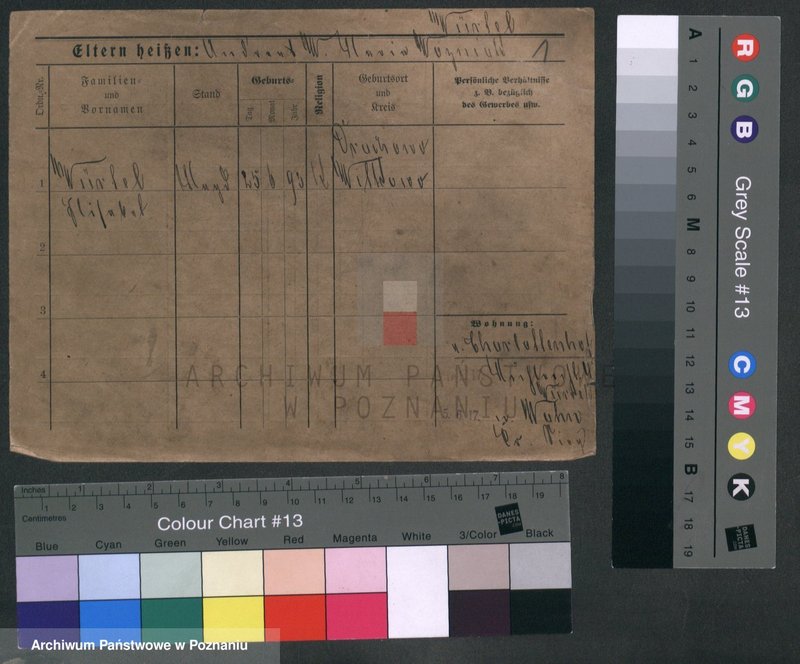 Würtel
Eltern heißen: Andreas u. Maria
Ordn.-Nr.
Familien-
und
Vornamen
Stand
Geburts-
Tag
Monat
Jahr
Religion
Geburtsort
und
Kreis
Persönliche Verhältnisse
z. B. bezüglich
des Gewerbes usw.
1
Würtel
Elisabet
Magd
25 6 93
Witkowo
2
3
4
Wohnung:
v. Charlottenhof
ARCHIWUM PAŃSTWOWE
W POZNANIU
Inches 1 2 3 4 5 6 7 8
1 2 3 4 5 6 7 8 9 10 11 12 13 14 15 16 17 18 19
Centimetres
Colour Chart #13
DANES
-PICTA
.COM
Blue Cyan Green Yellow Red Magenta White 3/Color Black
Archiwum Państwowe w Poznaniu
A 1 2 3 4 5 6 M 8 9 10 11 12 13 14 15 B 17 18 19
R G B
Grey Scale #13
C M Y K
DANES
-PICTA
.COM